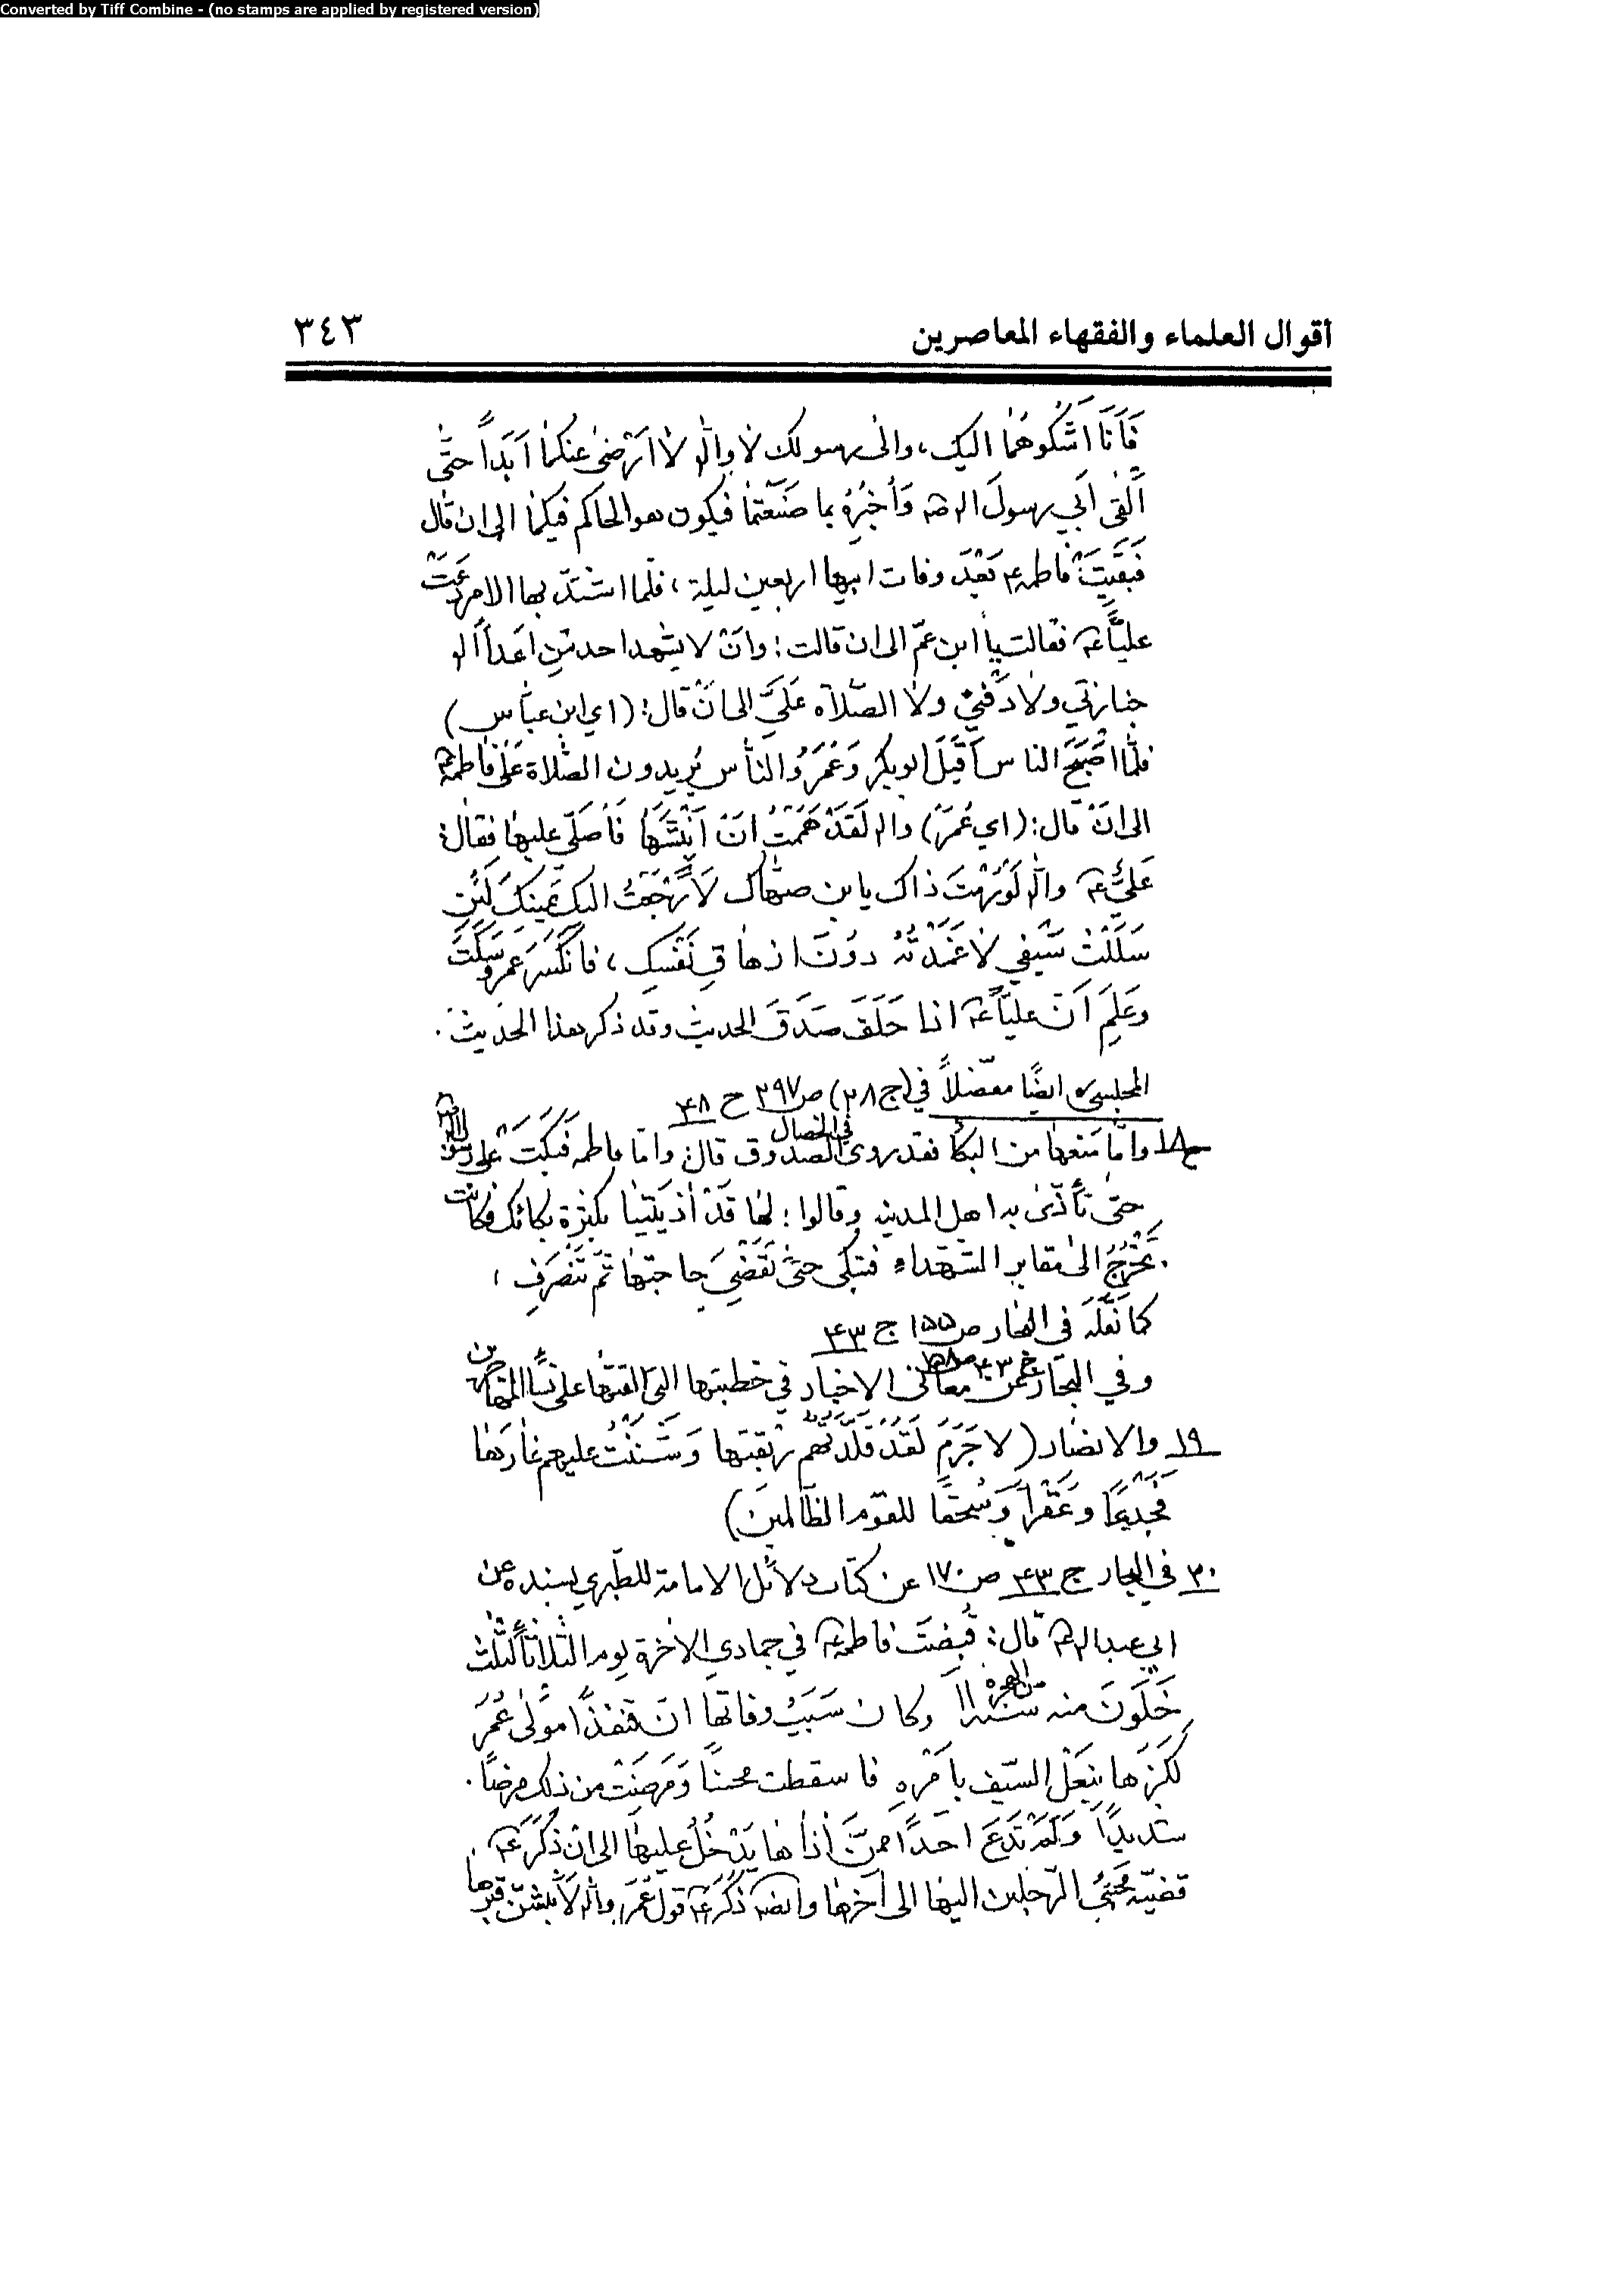 Converted by Tiff Combine - (no stamps are applied by registered version)
أقوال العلماء والفقهاء المعاصرين ٣٤٣
فَأَنَا اَشْكُوهُمٰا اليك، والىٰ رسولك لاٰ والله لاٰ اَرْضىٰ عنكمٰا اَبَداً حتّىٰ
اَلْقىٰ اَبي رسولَ الله ص وَاُخْبِرُهُ بما صَنَعْتمٰا فيكون هو الحاكم فيكمٰا الى ان قال
فَبَقِيَتْ فاطمه ع بَعْدَ وفات ابيها اربعين ليلة، فلّما اشتدّ بها الامر دَعَتْ
عليّاً ع فقالت يٰا ابن عمّ الى ان قالت: وانْ لا يشهد احد من اعداء الله
جنازتي ولا دَفْني ولاٰ الصّلاٰة عَلَيَّ الى انْ قال: (اي ابن عبّاس)
فلمّا اَصْبَحَ الناس اَقْبَلَ ابوبكر وَعُمَرُ والنٰاس يُريدون الصّلاة عَلىٰ فٰاطمة ع
الى انْ قال: (اي عُمَرُ) والله لَقَدْ هَمَمْتُ انْ اَنْبُشَهٰا فَاُصَلّي عليهٰا فقال:
عَليٌّ ع والله لَوْ رُمْتَ ذاك يا بن صهّاك لاَرْجَعْتُ اليك يَمينَكَ لَئِنْ
سَلَلْتُ سَيْفي لاٰ غَمَدْتُهُ دوُنَ ازهاق نَفْسِكَ، فانْكَسَرَ عمر وسَكَتَ
وعَلِمَ اَنّ عليّاً ع اذا حَلَفَ صَدَقَ الحديث وقد ذكر هذا الحَديثَ.
المجلسي ره ايضًا مفصّلاً في (ج٢٨) ص٢٩٧ ح ٤٨
١٨ــ وامّٰا مَنعهٰا من البكٰاء فقد روى الصّدوق في الخصال قال: وامّا فاطمه فَبَكَتْ عَلىٰ رسول الله ص
حتىٰ تَأذّىٰ به اهل المدينه وقالوا: لهٰا قَدْ اٰذيتينٰا بكثرة بكائك فكانت
تَخْرُجُ الىٰ مقابر الشّهداء فتبكي حتىٰ تَقْضِيَ حاجتهٰا ثمّ تَنْصَرِف،
كما نَقَلَهُ في البحار ص١٥٥ ج ٤٣
وفي البحار ج٤٣ ص١٥٨ عن معاني الاخبار في خطبتها التي القتها على نسٰاء المهٰاجرين
١٩ــ والانصٰار (لاجَرَمَ لَقَدْ قَلَّدْتُهم رِبْقتها وَشَنَنْتُ عليهم غٰارَتهٰا
فَجَدْعًا وعَقْراً وَسُحقًا للقوم الظّالمين)
٢٠ في البحار ج ٤٣ ص ١٧٠ عن كتاب دلائل الامامة للطّبري بسنده عن
ابي عبدالله ع قال: قُبِضَتْ فاطمة ع في جمادي الاٰخرة يوم الثّلاثاء لثلاث
خَلَوْنَ منه سنه ١١ من الهجرة وكان سَبَبُ وفاتها انّ قنفذًا مَولىٰ عُمَرَ
لَكَزَها بِنَعْلِ السّيف بِاَمْرِهِ فاسقطت محسنًا وَمَرِضَتْ من ذلك مرضًا.
شديداً وَلَمْ تَدَعْ احَدًا ممّن اٰذاها يَدْخُلُ عليهٰا الى انْ ذَكَرَ ع.
قضيّة مَجيئ الرّجلين اليهٰا الى اٰخرهٰا وايضه ذَكَرَ ع قول عُمَرَ والله لاَنْبشنّ قبرها